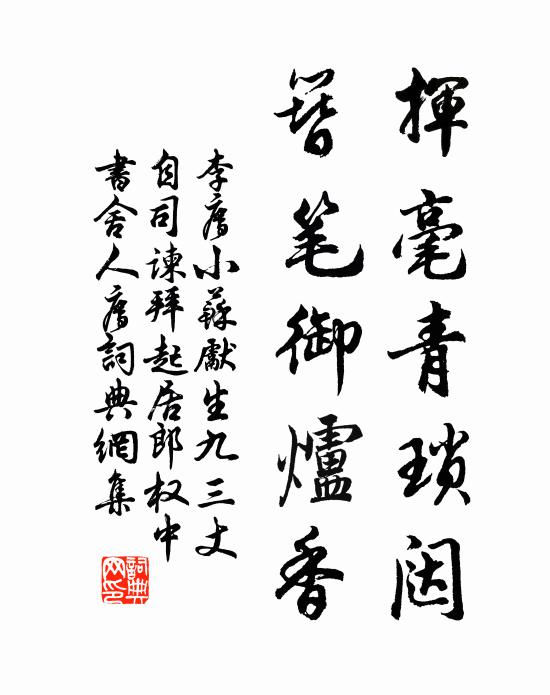 揮毫青瑣闥
簪笔御爐香
李廌小蘇獻生九三丈
自司諫拜起居郎权中
書舍人廌詞典網集
詞典网印